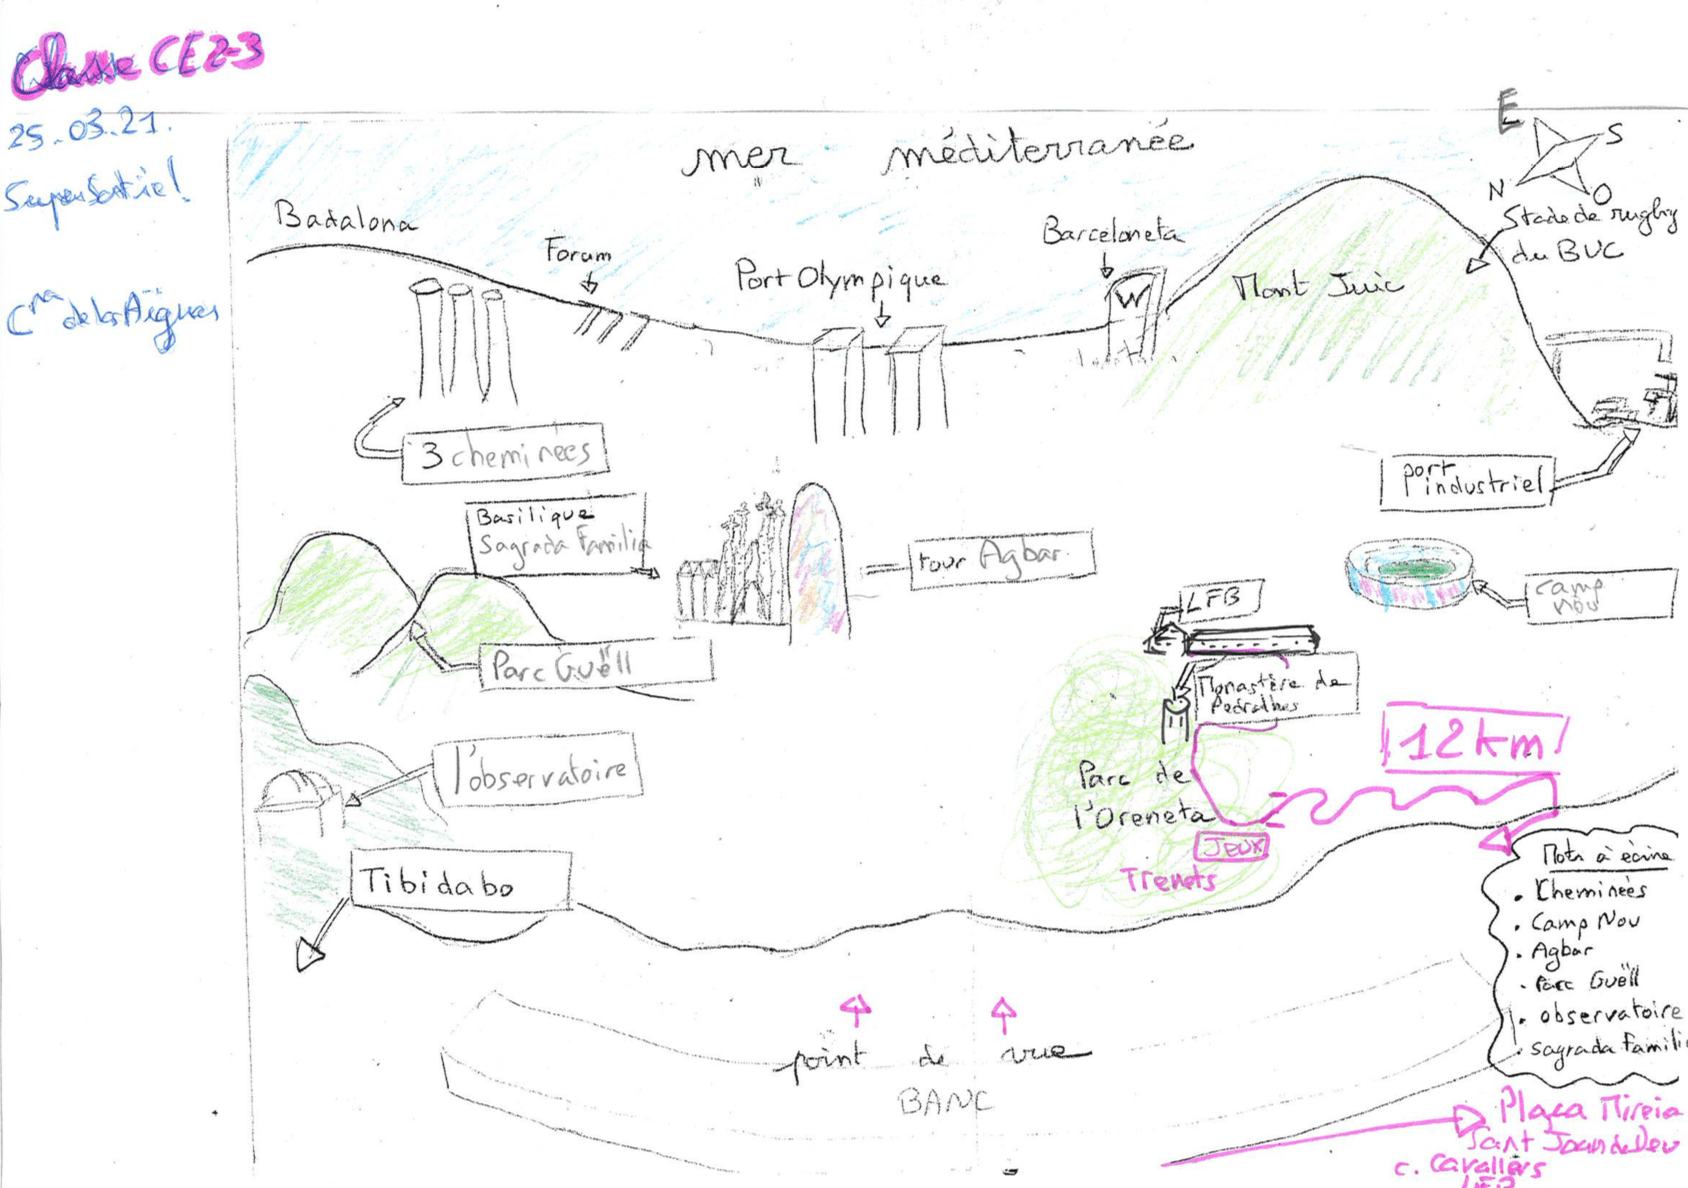 Classe CE2-3
25.03.21.
Super Sortie!
Cra de les Aïgues
mer méditerranée
E
S
N
O
Badalona
Forum
Port Olympique
Barceloneta
W
Mont Juic
Stade de rugby
du BUC
3 cheminées
port
industriel
Basilique
Sagrada Familia
tour Agbar
camp
nou
LFB
Parc Guëll
Monastère de
Pedralbes
12 km
l'observatoire
Parc de
l'Oreneta
Jeux
Trenets
Tibidabo
Mots à écrire
. Cheminées
. Camp Nou
. Agbar
. Parc Guëll
. observatoire
. sagrada familia
point de vue
BANC
Plaça Mireia
Sant Joan de Deu
c. Cavallers
LFB